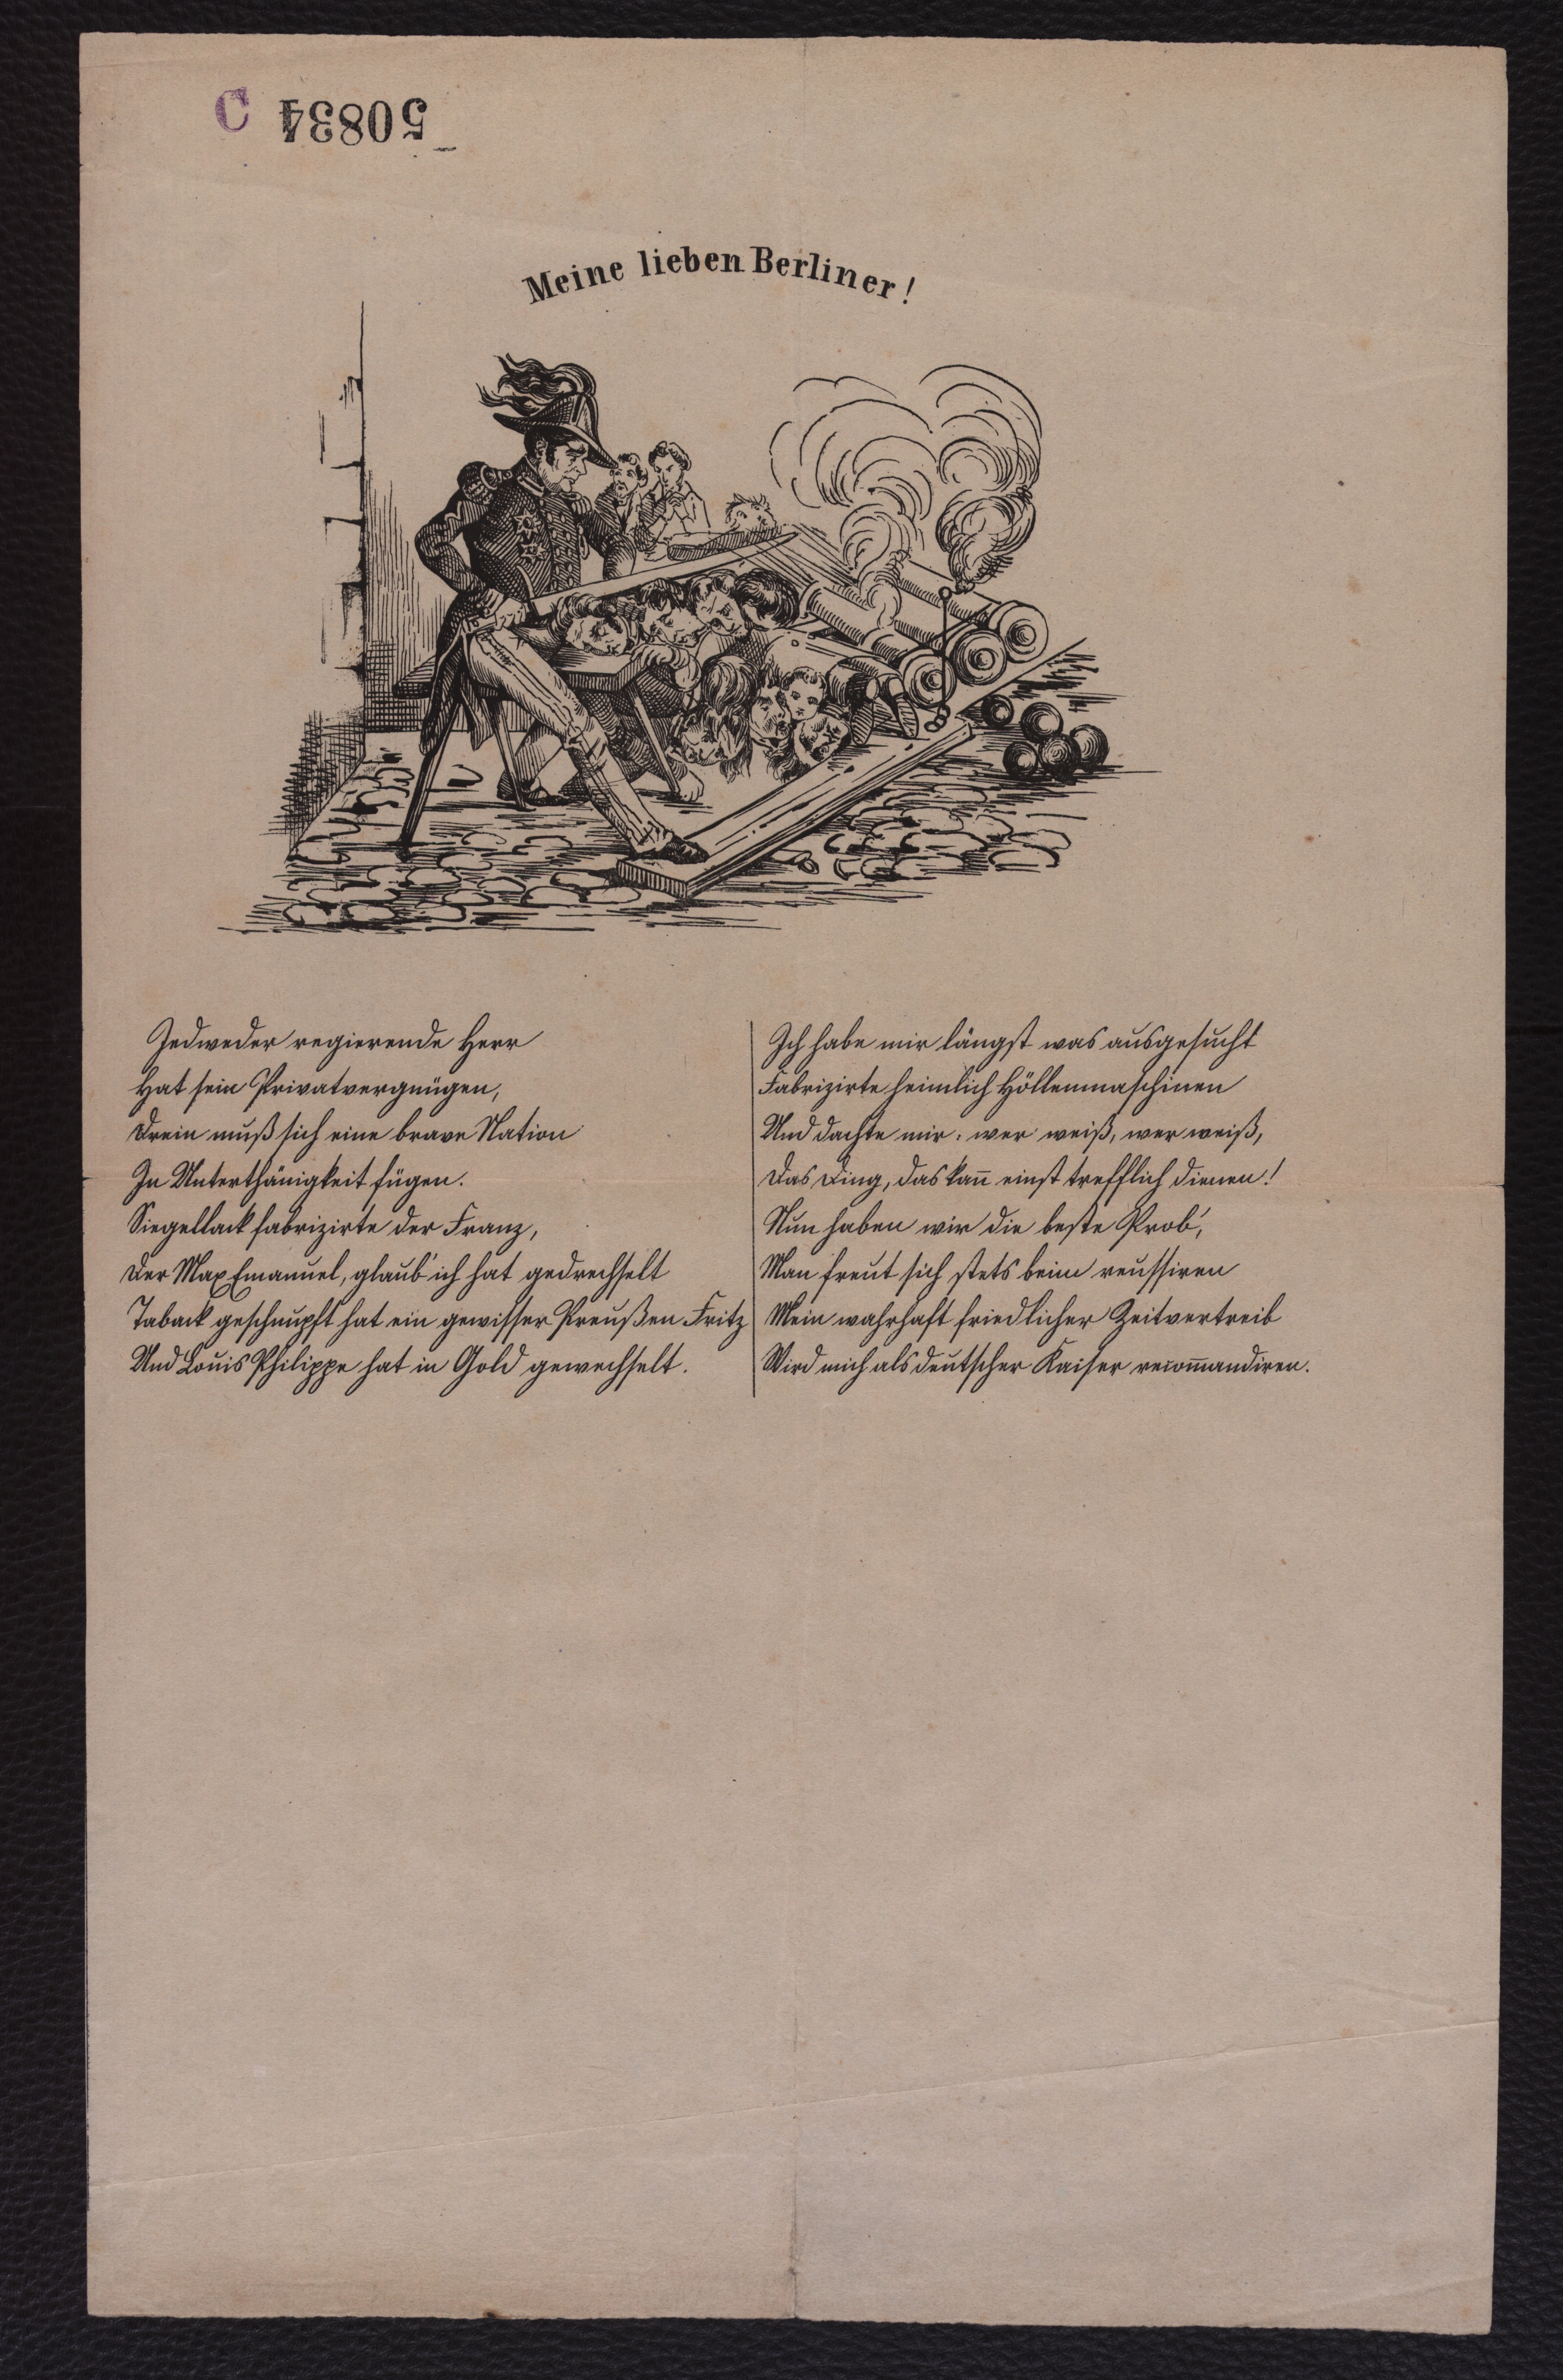 C 50834
Meine lieben Berliner!
Jedweder regierende Herr
Hat sein Privatvergnügen,
Drein muß sich eine brave Nation
In Unterthänigkeit fügen.
Siegellack fabrizirte der Franz,
Der Max Emanuel, glaub' ich hat gedrechselt
Taback geschnupft hat ein gewisser Preußen Fritz
Und Louis Philippe hat in Gold gewechselt.
Ich habe mir längst was ausgesucht
Fabrizirte heimlich Höllenmaschinen
Und dachte mir: wer weiß, wer weiß,
Das Ding, das kan̄ einst trefflich dienen!
Nun haben wir die beste Prob',
Man freut sich stets beim reussiren
Mein wahrhaft friedlicher Zeitvertreib
Wird mich als deutscher Kaiser recom̄andiren.